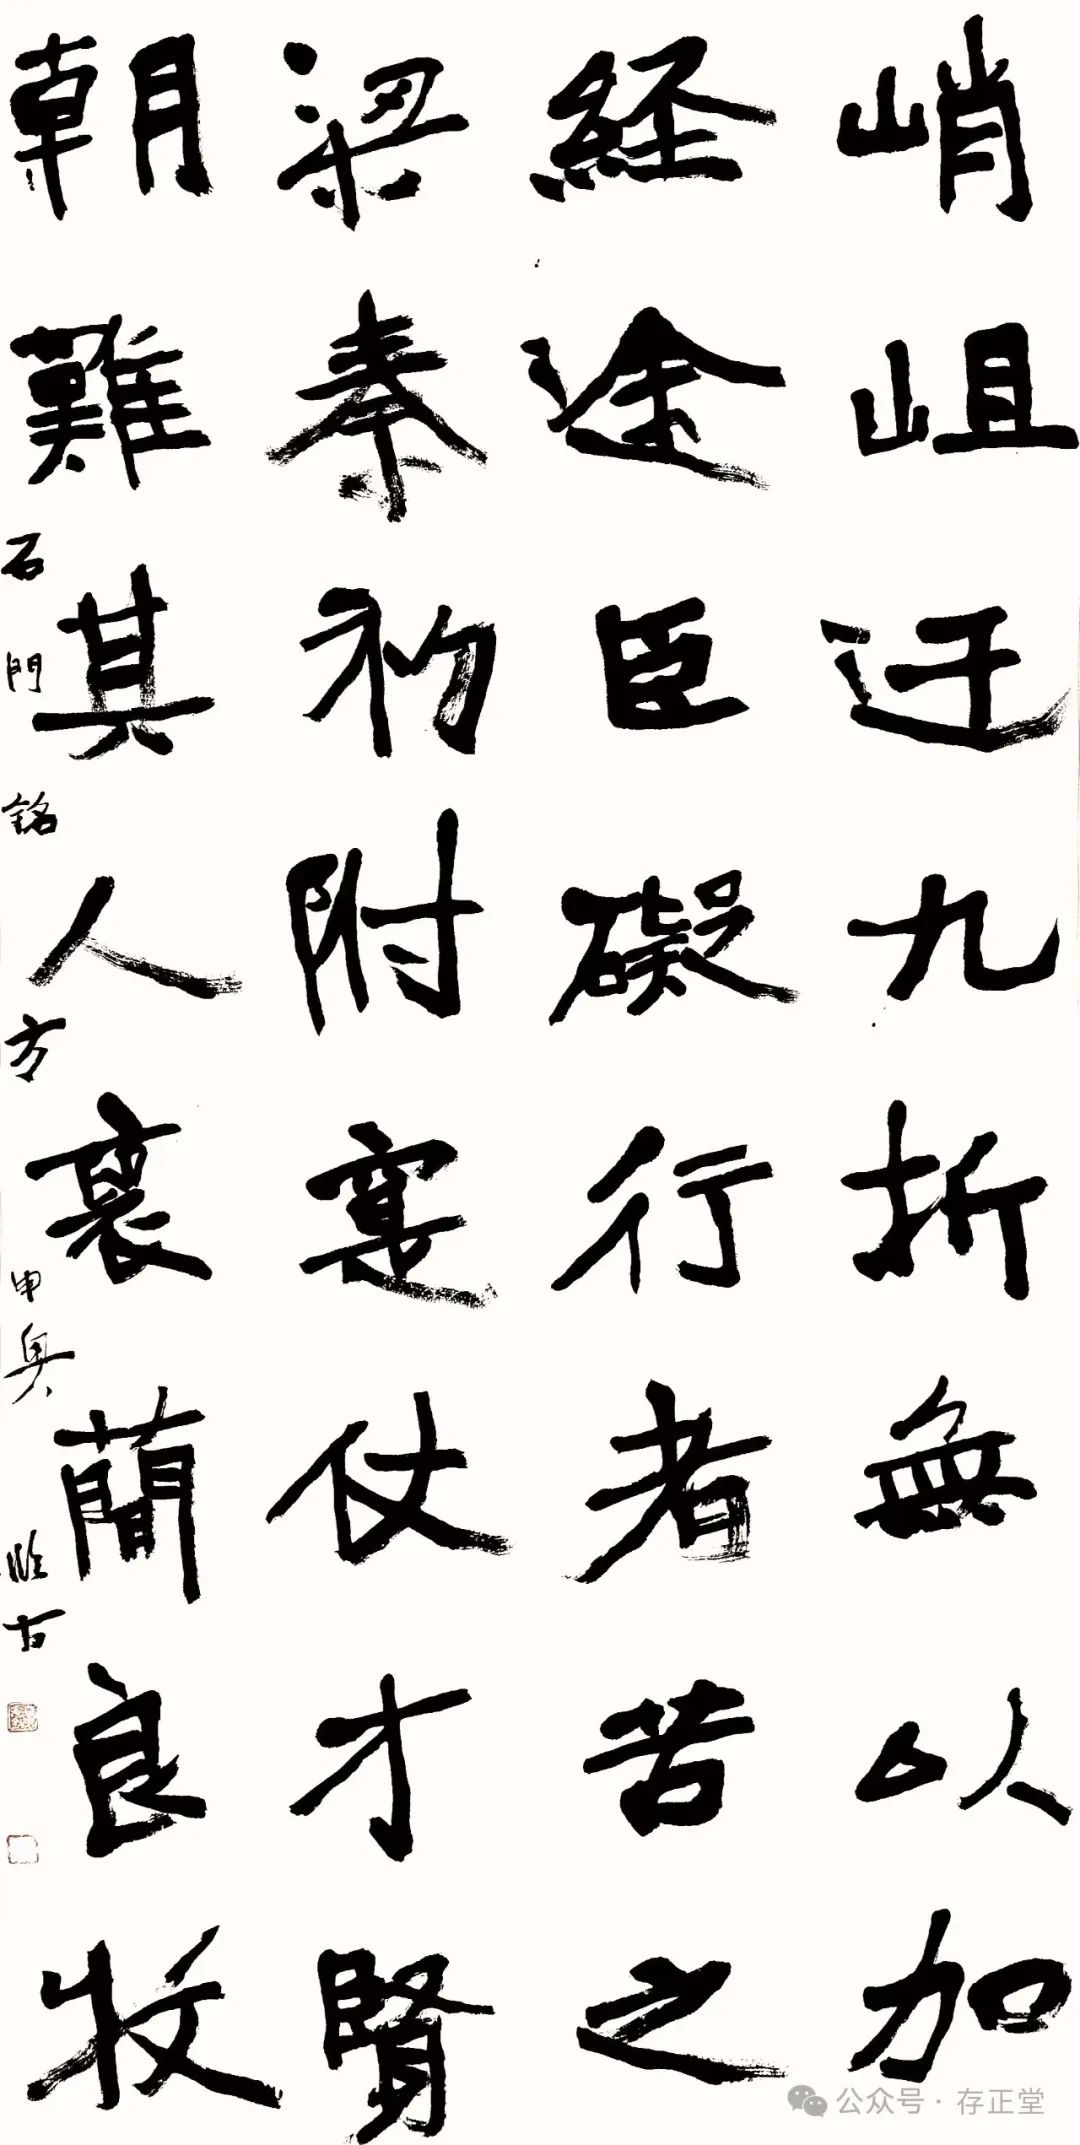 峭岨迂九折無以加
経途臣礙行者苦之
梁秦初附寔仗才賢
朝難其人褒蕳良牧
石門銘方
公众号·存正堂